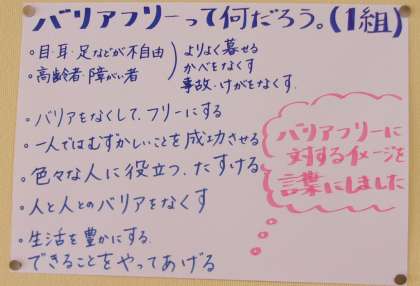 バリアフリーって何だろう。(1組)
。目・耳・足などが不自由
。高齢者・障がい者
よりよく暮せる
かべをなくす
事故・けがをなくす.
。バリアをなくして、フリーにする
。一人ではむずかしいことを成功させる
。色々な人に役立つ、たすける
。人と人とのバリアをなくす
。生活を豊かにする.
。できることをやってあげる
バリアフリーに
対するイメージを
言葉にしました